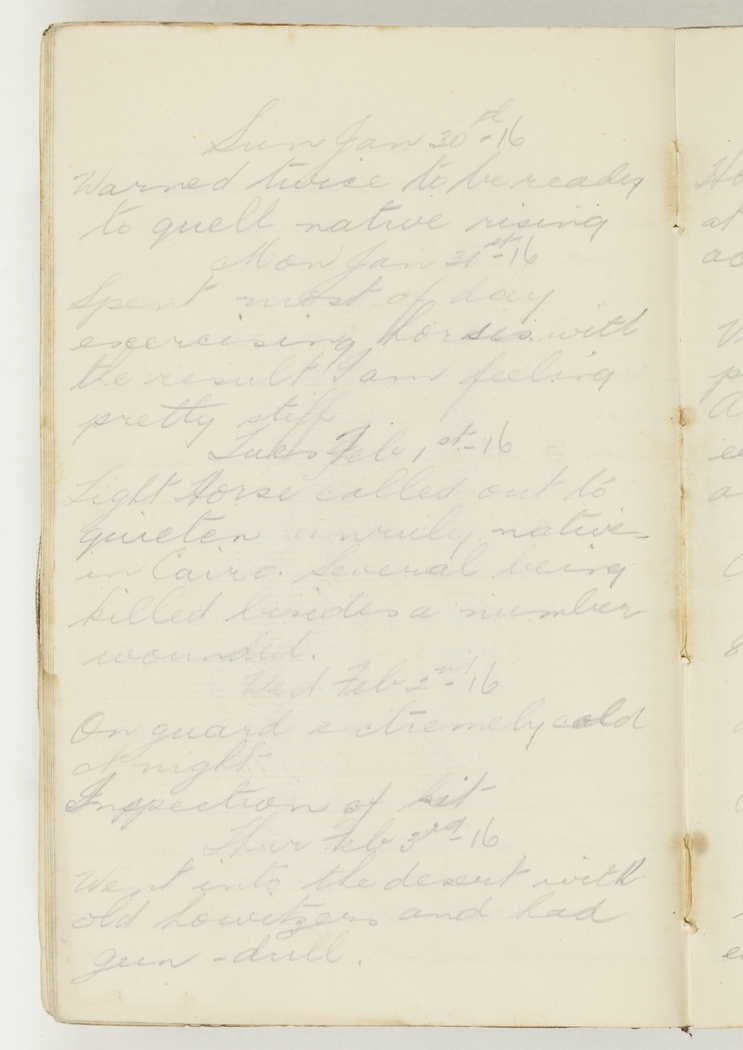 Sun Jan 30th-16
Warned twice to be ready
to quell native rising
Mon Jan 31st-16
Spent most of day
exercising horses with
the result I am feeling
pretty stiff
Tues Feb 1st-16
Light Horse called out to
quieten unruly natives
in Cairo. Several being
killed besides a number
wounded.
Wed Feb 2nd-16
On guard extremely cold
at night
Inspection of kit
Thur Feb 3rd-16
Went into the desert with
old howitzers and had
gun-drill.